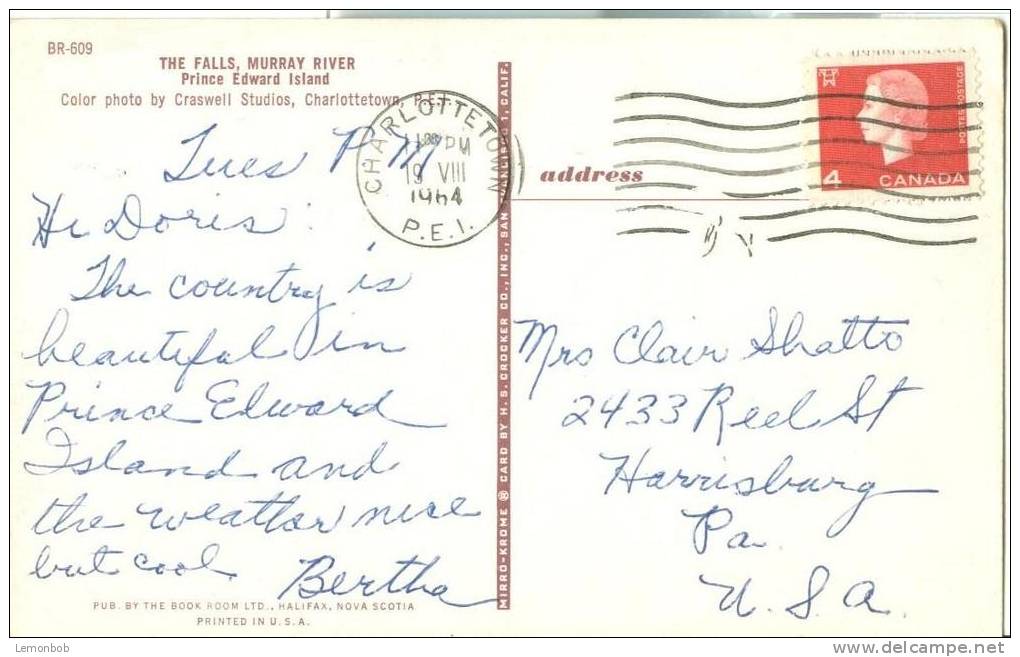 BR-609
THE FALLS, MURRAY RIVER
Prince Edward Island
Color photo by Craswell Studios, Charlottetown, P.E.I.
Tues PM
Hi Doris:
The country is
beautiful in
Prince Edward
Island and
the weather nice
but cool.
Bertha
PUB. BY THE BOOK ROOM LTD., HALIFAX, NOVA SCOTIA
PRINTED IN U.S.A.
MIRRO-KROME ® CARD BY H. S. CROCKER CO., INC., SAN FRANCISCO 1, CALIF.
CHARLOTTETOWN
PM
19 VIII
1964
P.E.I.
address
POSTES POSTAGE
4 CANADA
Mrs Clair Shatto
2433 Reel St
Harrisburg
Pa.
U.S.A.
Lemonbob
delcampe.net